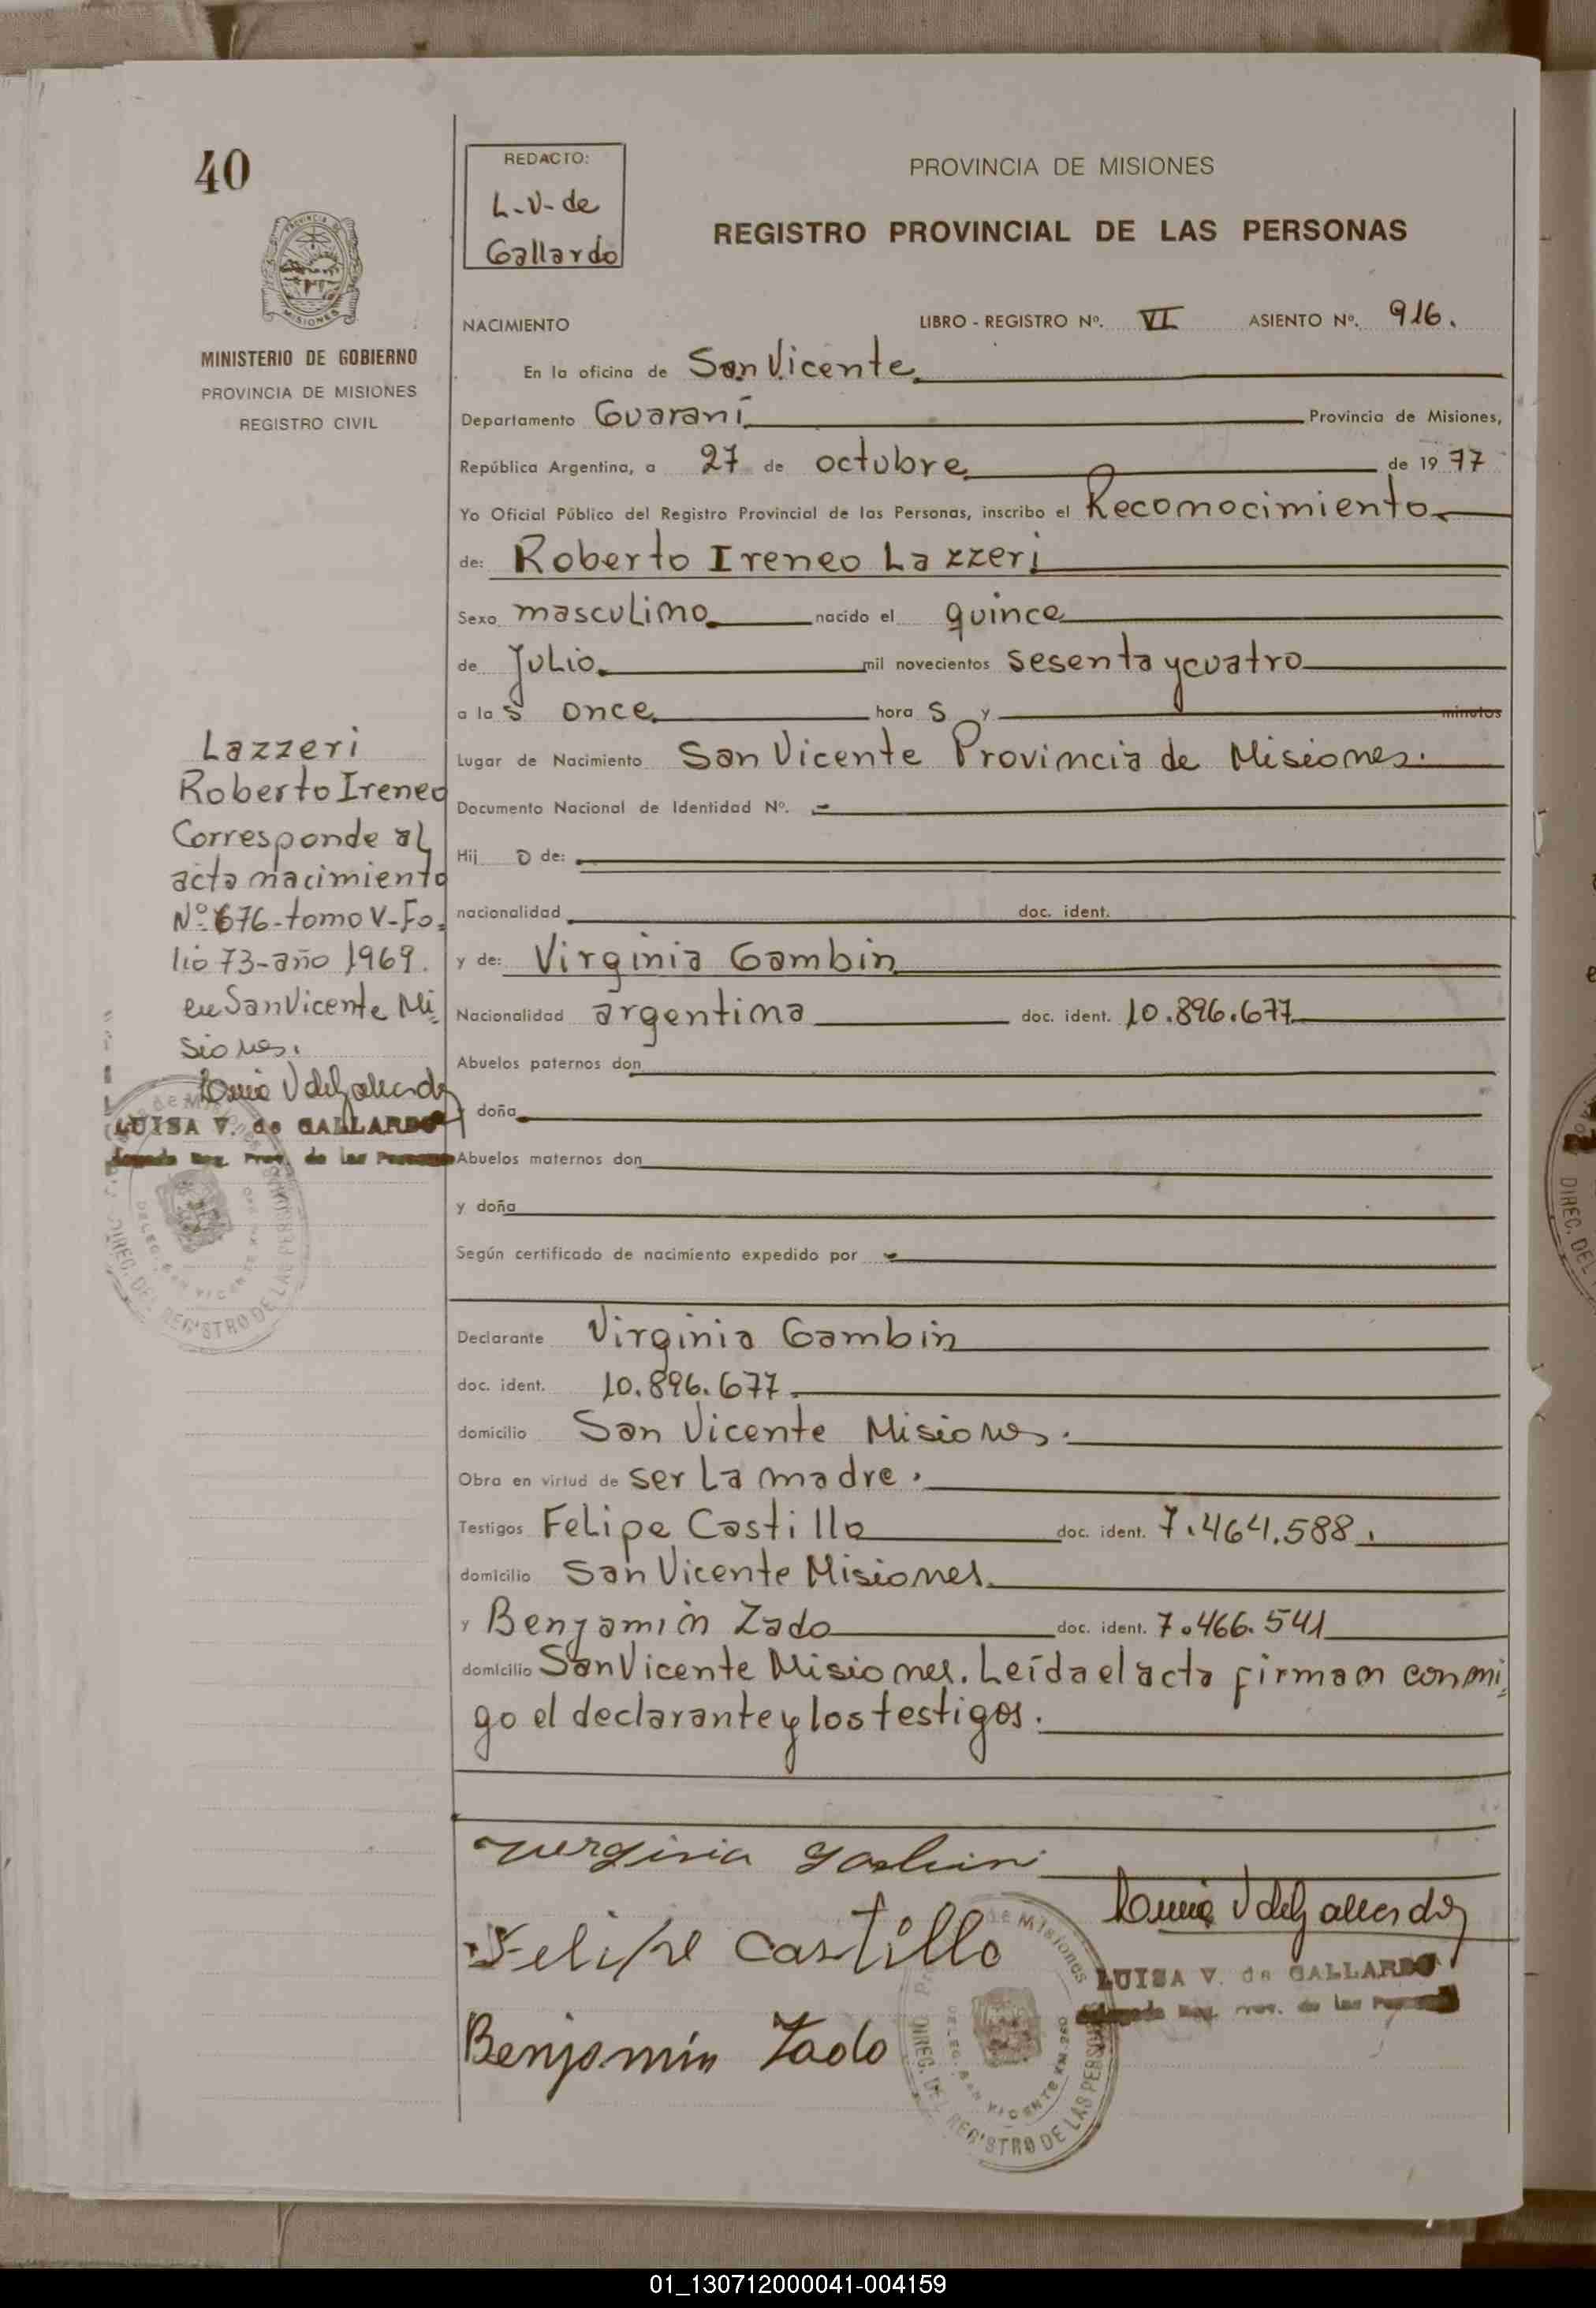 40
REDACTO:
L-V-de
Gallardo
PROVINCIA DE MISIONES
REGISTRO PROVINCIAL DE LAS PERSONAS
MISIONES
MINISTERIO DE GOBIERNO
PROVINCIA DE MISIONES
REGISTRO CIVIL
NACIMIENTO LIBRO - REGISTRO Nº. VI ASIENTO Nº. 916.
En la oficina de San Vicente
Departamento Guaraní Provincia de Misiones,
República Argentina, a 27 de octubre de 19 77
Yo Oficial Público del Registro Provincial de las Personas, inscribo el Reconocimiento
de: Roberto Ireneo Lazzeri
Sexo masculino nacido el quince
de Julio. mil novecientos sesenta y cuatro
a las once. horas y minutos
Lugar de Nacimiento San Vicente Provincia de Misiones.
Documento Nacional de Identidad Nº. -
Hij o de:
nacionalidad doc. ident.
y de: Virginia Gambin
Nacionalidad argentina doc. ident. 10.896.677
Abuelos paternos don
y doña
Abuelos maternos don
y doña
Según certificado de nacimiento expedido por
Lazzeri
Roberto Ireneo
Corresponde al
acta nacimiento
Nº 676-tomo V-Fo=
lio 73-año 1969.
en San Vicente Mi=
siones.
LUISA V. de GALLARDO
Reg. Prov. de las Personas
DIREC. DEL REGISTRO DE LAS PERSONAS
DELEG. SAN VICENTE
Declarante Virginia Gambin
doc. ident. 10.896.677.
domicilio San Vicente Misiones.
Obra en virtud de ser La madre.
Testigos Felipe Castillo doc. ident. 7.464.588.
domicilio San Vicente Misiones.
y Benjamin Zado doc. ident. 7.466.541
domicilio San Vicente Misiones. Leída el acta firman conmi=
go el declarante y los testigos.
Virginia Gambin
Felipe Castillo
Benjamín Zado
LUISA V. de GALLARDO
Reg. Prov. de las Personas
de Misiones
DIREC. DEL REGISTRO DE LAS PERSONAS
DELEG. SAN VICENTE KM. 260
DIREC. DEL
01_130712000041-004159